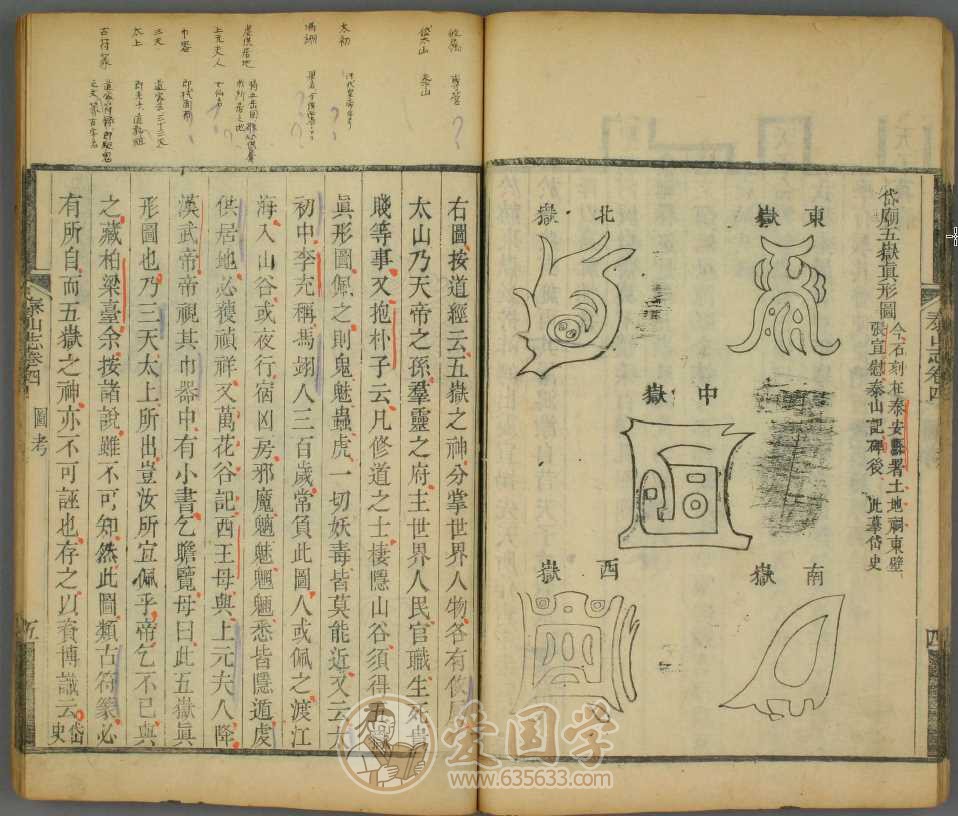 岱廟五嶽眞形圖
今石刻在泰安縣署土地祠東壁
張宣慰泰山記碑後 此摹岱史
東嶽
北嶽
中嶽
南嶽
西嶽
泰山志卷四
四
右圖按道經云五嶽之神分掌世界人物各有攸屬
太山乃天帝之孫羣靈之府主世界人民官職生死貴
賤等事又抱朴子云凡修道之士棲隱山谷須得五嶽
眞形圖佩之則鬼魅蟲虎一切妖毒皆莫能近又云太
初中李充稱馮翊人三百歲常負此圖人或佩之渡江
海入山谷或夜行宿凶房邪魔魑魅魍魎悉皆隱遁虔
供居地必獲禎祥又萬花谷記西王母與上元夫人降
漢武帝帝視其巾器中有小書乞瞻覽母曰此五嶽眞
形圖也乃三天太上所出豈汝所宜佩乎帝乞不已與
之藏柏梁臺余按諸說雖不可知然此圖類古符篆必
有所自而五嶽之神亦不可誣也存之以資博識云岱史
泰山志卷四
圖考
五
太山 泰山
太初
馮翊
虔供居地
上元夫人
巾器
三天
太上
古符篆
愛国学
www.635633.com